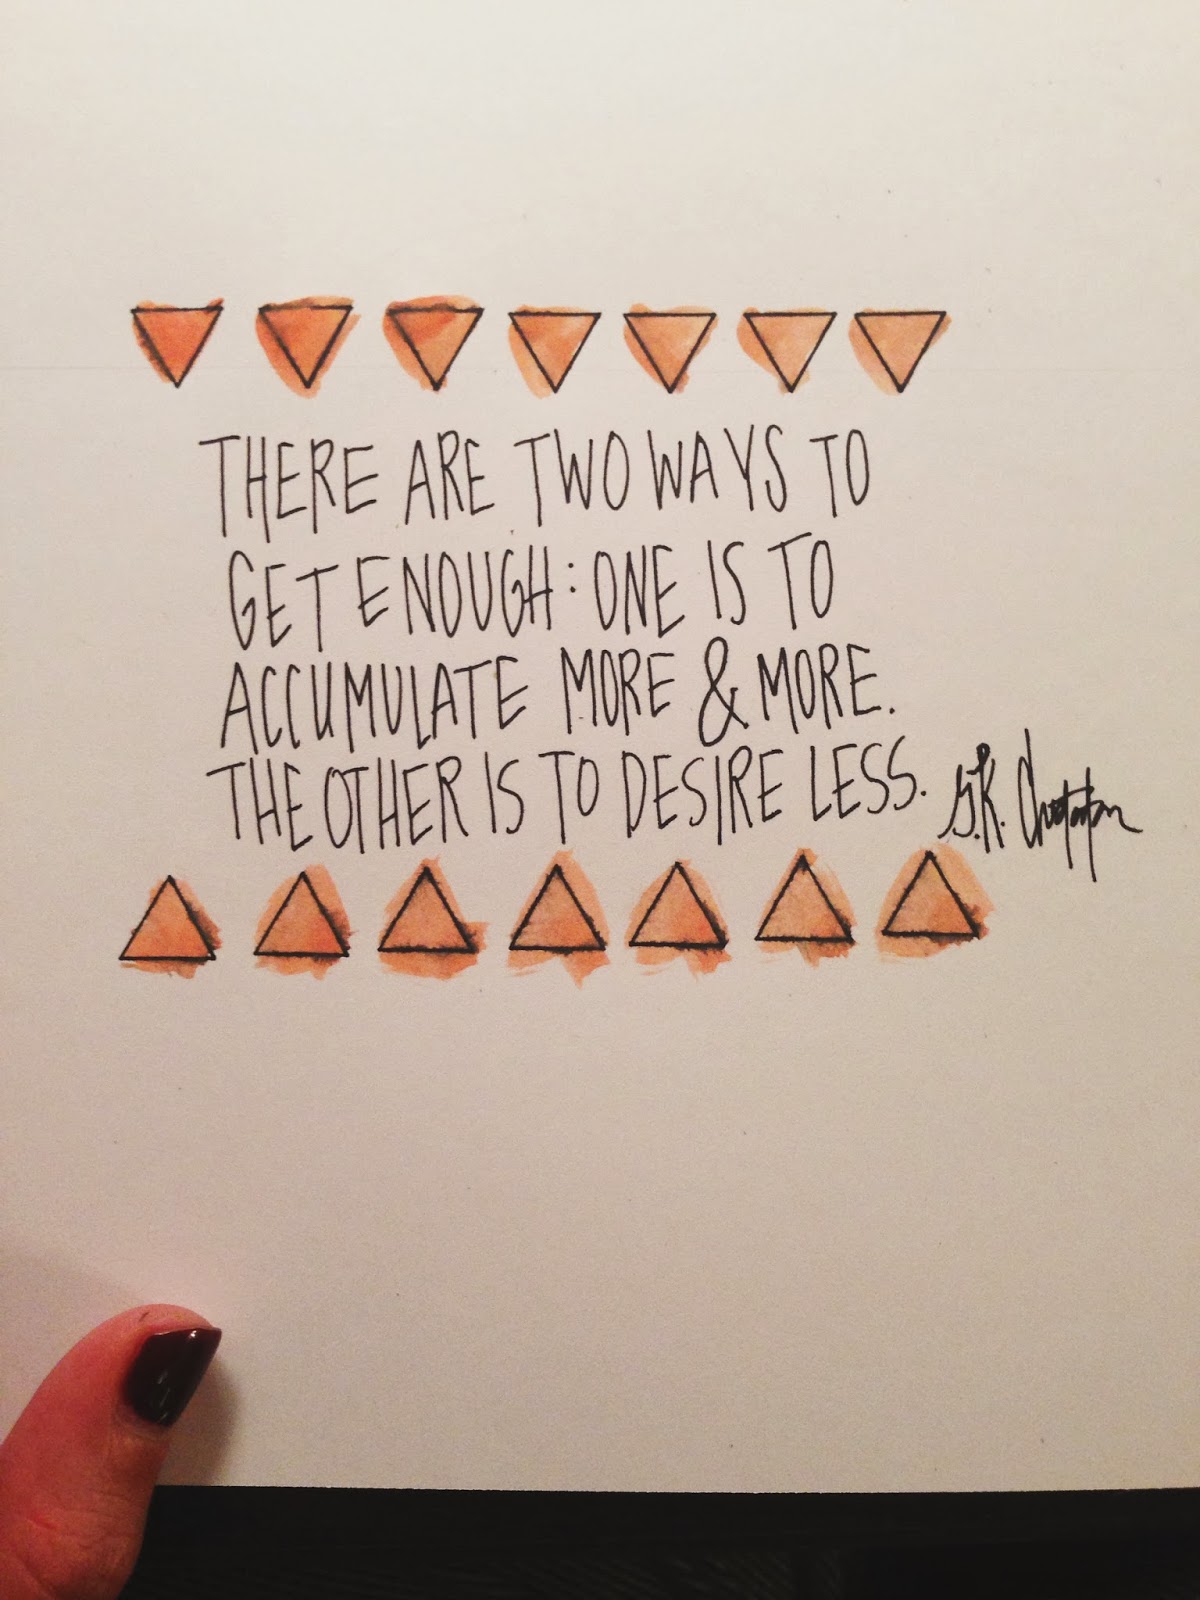 THERE ARE TWO WAYS TO
GET ENOUGH: ONE IS TO
ACCUMULATE MORE & MORE.
THE OTHER IS TO DESIRE LESS. G.K. Chesterton